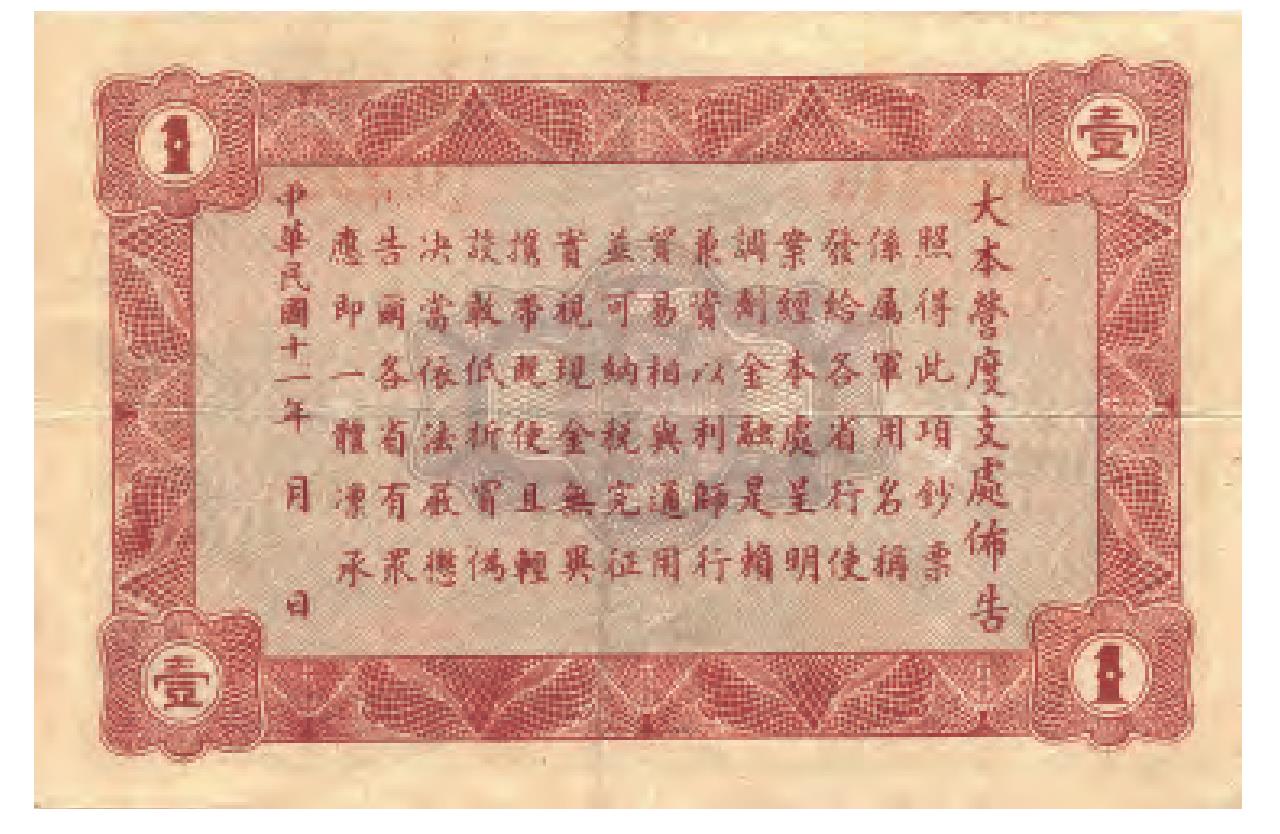 壹
1
大本營度支處佈告
照得此項鈔票
係屬軍用名稱
發給各省行使
案經本處呈明
調劑金融是賴
兼資以利師行
貿易相與通用
並可納稅完征
視現金無異
携帶既便且輕
設敢低折冒偽
决當依法嚴懲
告爾各省有眾
應即一體凜承
中華民國十二年 月 日
1
壹